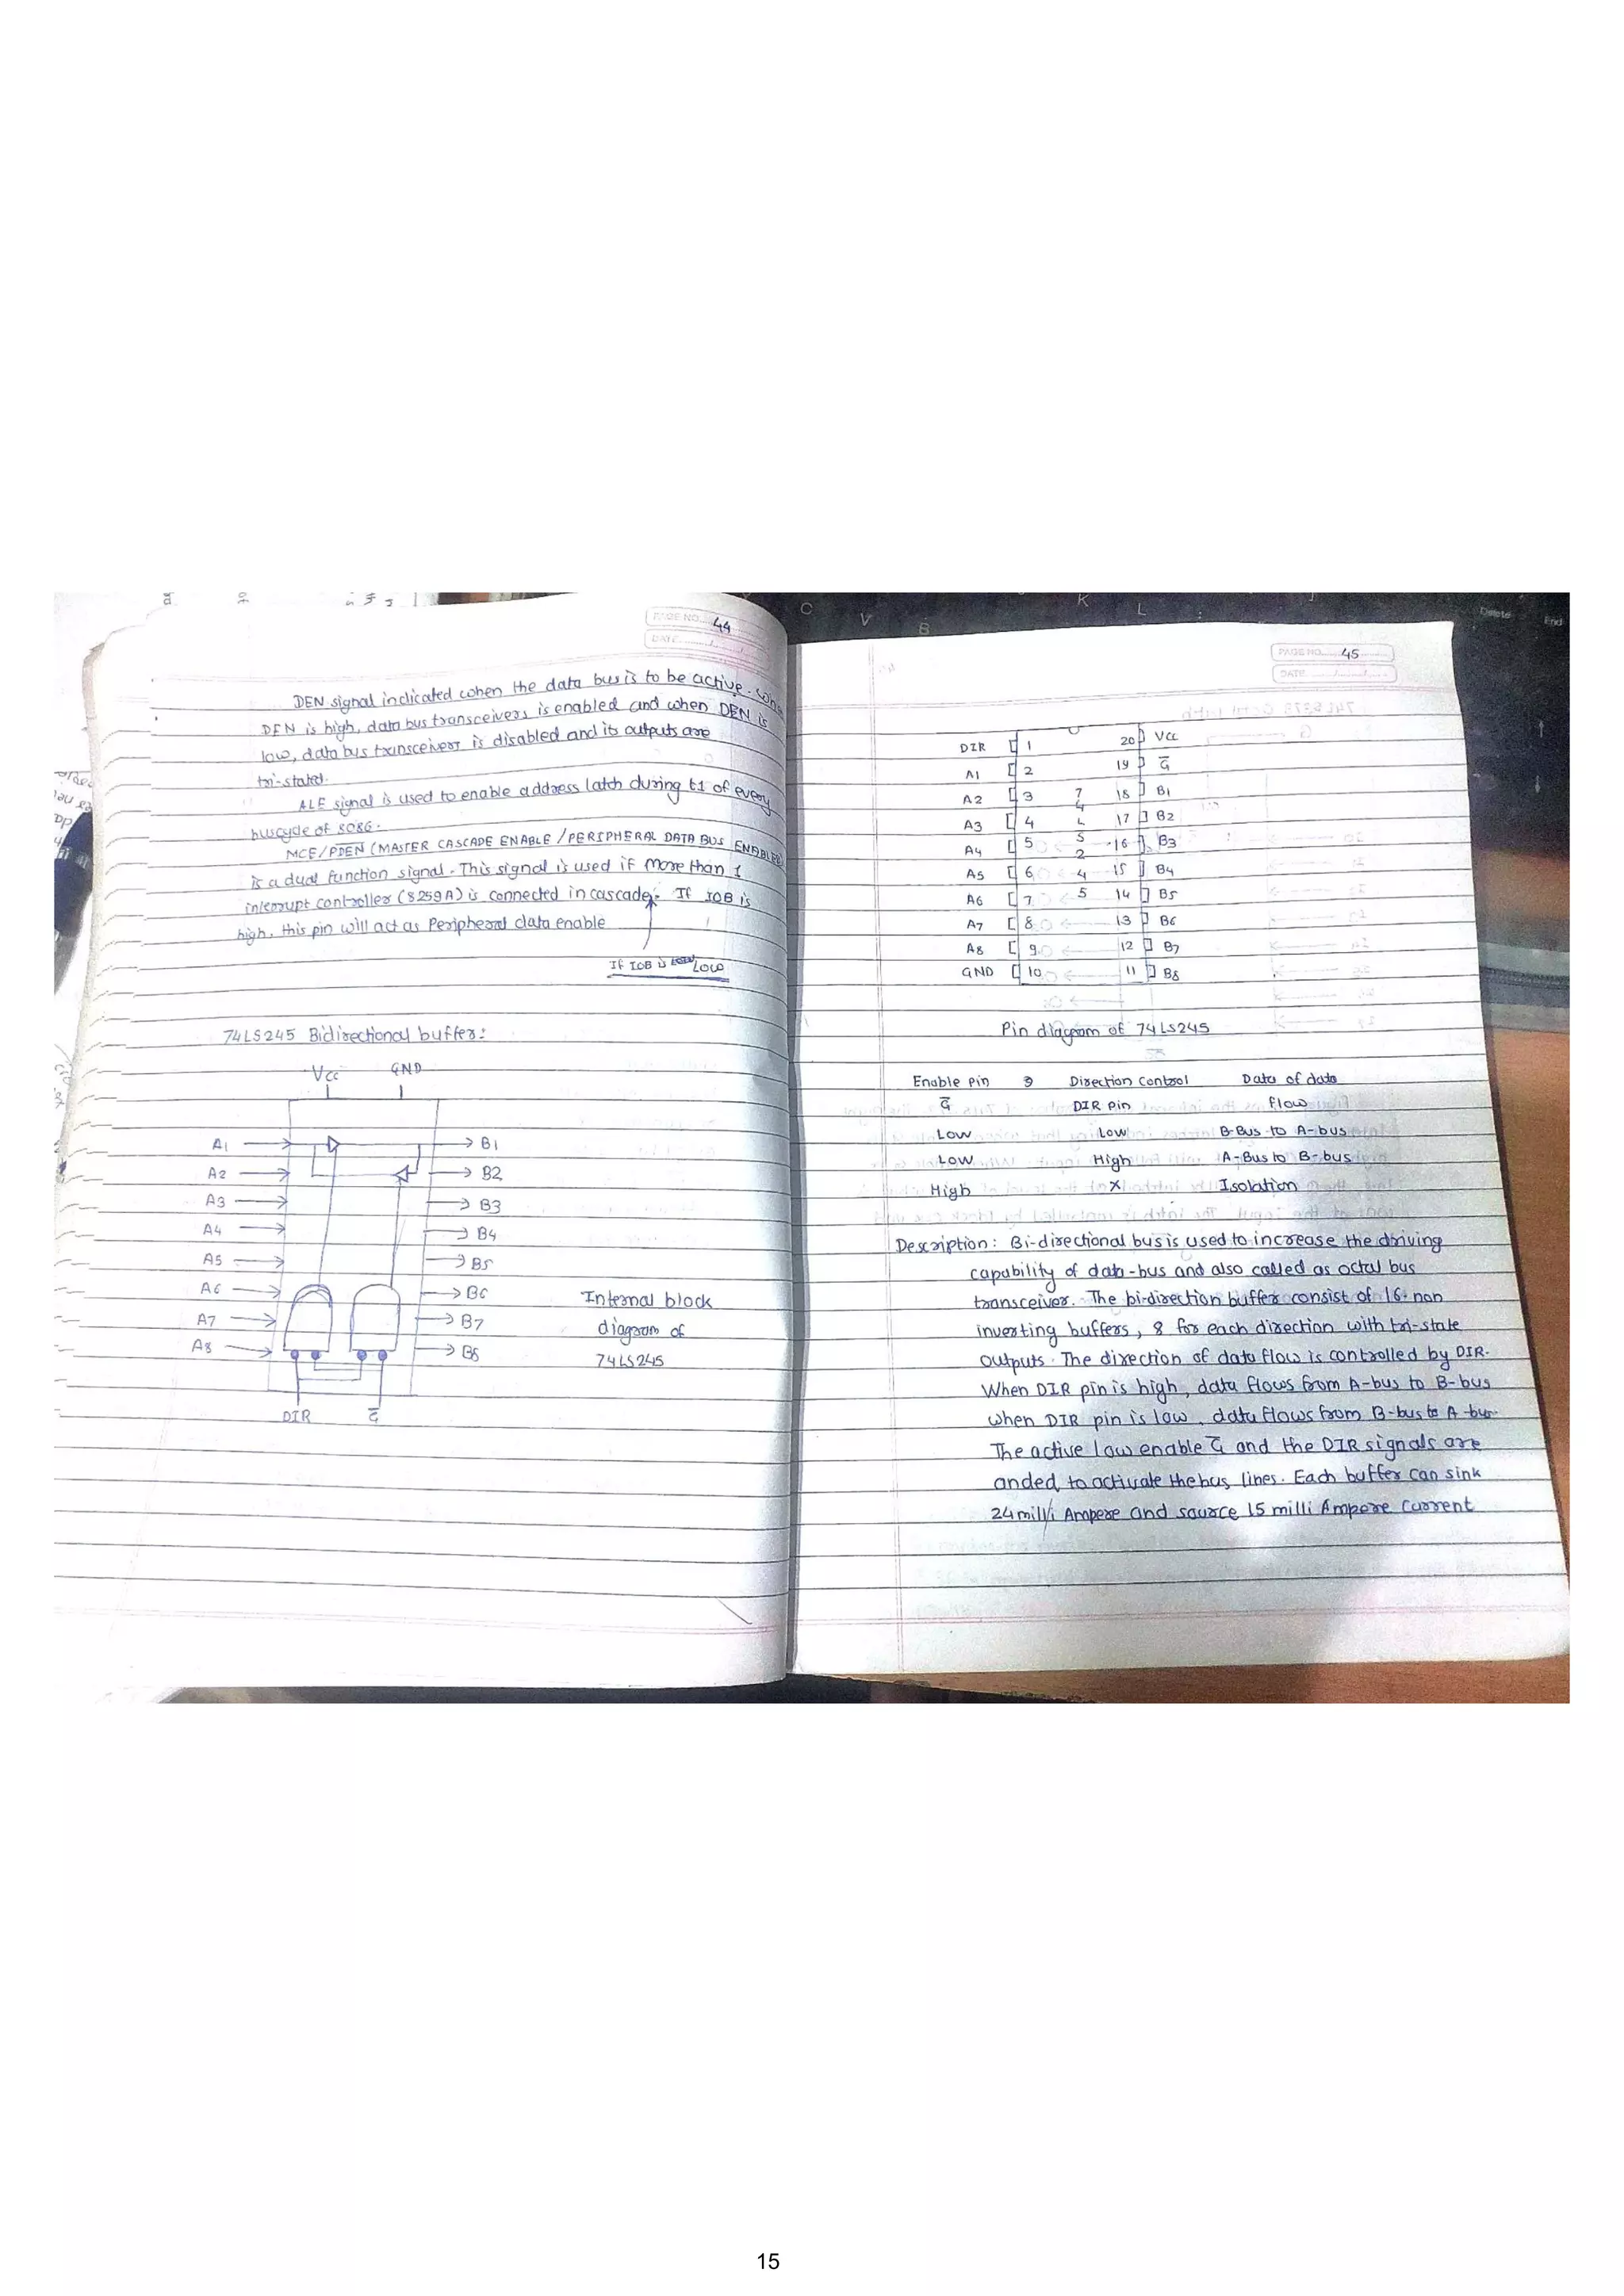 PAGE NO. 44
DATE
DEN signal indicated when the data bus is to be active. When
DEN is high, data bus transceivers is enabled and when DEN is
low, data bus transceivers is disabled and its outputs are
tri-stated.
ALE signal is used to enable address latch during t1 of every
buscycle of 8086.
MCE/PDEN (MASTER CASCADE ENABLE / PERIPHERAL DATA BUS ENABLED)
is a dual function signal. This signal is used if more than 1
interrupt controller (8259A) is connected in cascade. If IOB is
high, this pin will act as Peripheral data enable
If IOB is Low
74LS245 Bidirectional buffer:
Vcc GND
A1 B1
A2 B2
A3 B3
A4 B4
A5 B5
A6 B6
A7 B7
A8 B8
DIR G̅
Internal block
diagram of
74LS245
PAGE NO. 45
DATE
DIR 1 20 Vcc
A1 2 19 G̅
A2 3 7 18 B1
A3 4 4 L 17 B2
A4 5 S 16 B3
A5 6 2 4 15 B4
A6 7 5 14 B5
A7 8 13 B6
A8 9 12 B7
GND 10 11 B8
Pin diagram of 74LS245
Enable Pin Direction Control Data of data
G̅ DIR Pin flow
Low Low B-Bus to A-bus
Low High A-Bus to B-bus
High X Isolation
Description: Bi-directional bus is used to increase the driving
capability of data-bus and also called as octal bus
transceiver. The bi-direction buffer consist of 16 non
inverting buffers, 8 for each direction with tri-state
outputs. The direction of data flow is controlled by DIR.
When DIR pin is high, data flows from A-bus to B-bus
when DIR pin is low, data flows from B-bus to A-bus
The active low enable G̅ and the DIR signals are
anded to activate the bus lines. Each buffer can sink
24 milli Ampere and source 15 milli Ampere Current
15